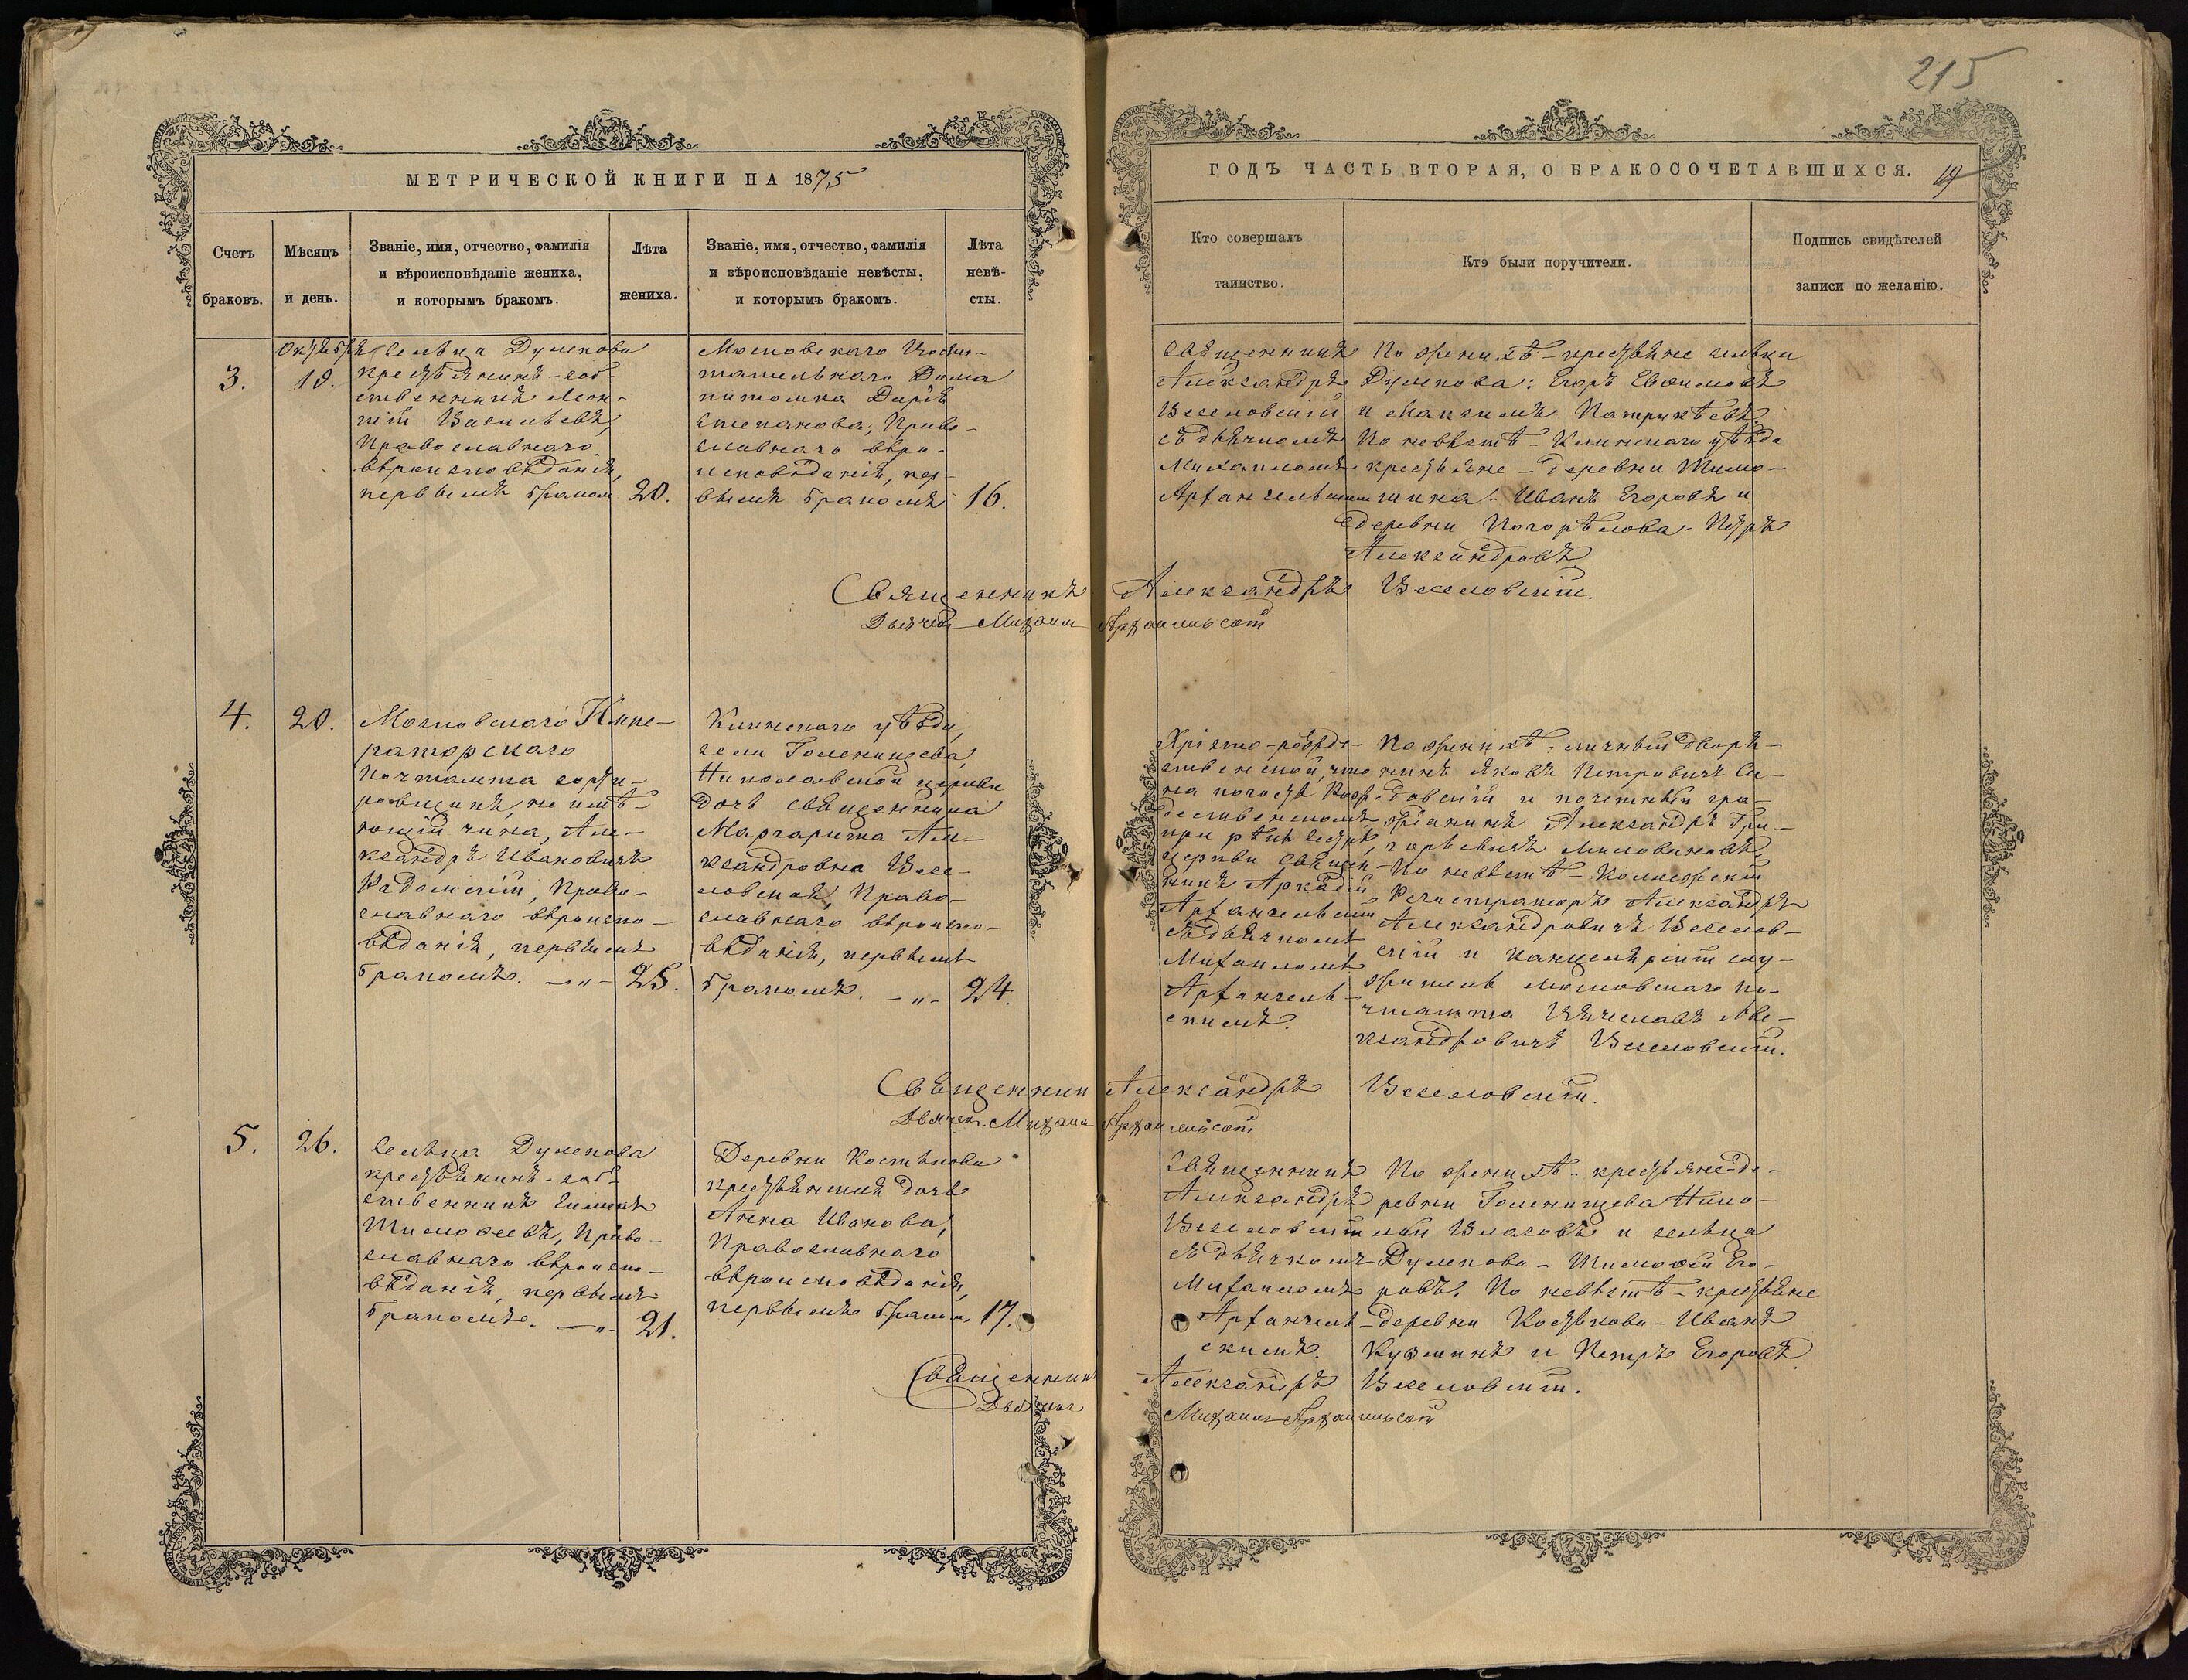 215
МЕТРИЧЕСКОЙ КНИГИ НА 1875
ГОДЪ ЧАСТЬ ВТОРАЯ, О БРАКОСОЧЕТАВШИХСЯ. 19
Счетъ
браковъ.
Мѣсяцъ
и день.
Званіе, имя, отчество, фамилія
и вѣроисповѣданіе жениха,
и которымъ бракомъ.
Лѣта
жениха.
Званіе, имя, отчество, фамилія
и вѣроисповѣданіе невѣсты,
и которымъ бракомъ.
Лѣта
невѣ-
сты.
Кто совершалъ
таинство.
Кто были поручители.
Подпись свидѣтелей
записи по желанію.
3.
Октября
19.
сельца Дулепова
крестьянинъ-соб-
ственникъ Леон-
тій Васильевъ,
Православнаго
вѣроисповѣданія,
первымъ бракомъ
20.
Московскаго Воспи-
тательнаго Дома
питомка Дарія
Степанова, Право-
славнаго вѣро-
исповѣданія, пер-
вымъ бракомъ
16.
Священникъ
Александръ
Веселовскій
съ дьячкомъ
Михаиломъ
Архангельским
По женихѣ - крестьяне сельца
Дулепова: Егоръ Евфимовъ
и Максимъ Патрикѣевъ,
По невѣстѣ - Клинскаго уѣзда
крестьяне - деревни Тимо-
шкина - Иванъ Егоровъ и
деревни Погорѣлова - Петръ
Александровъ
Священникъ Александръ Веселовскій.
Дьячек Михаил Архангельскій
4.
20.
Московскаго Импе-
раторскаго
Почтамта сорти-
ровщикъ, не имѣ-
ющій чина, Але-
ксандръ Ивановичъ
Радомскій, Право-
славнаго вѣроиспо-
вѣданія, первымъ
бракомъ. — „ —
25.
Клинскаго уѣзда,
села Голенищева,
Николаевской церкви
дочь священника
Маргарита Але-
ксандровна Весе-
ловская, Право-
славнаго вѣроиспо-
вѣданія, первымъ
бракомъ. — „ —
24.
Христо-рожде-
ственской, что
на погостѣ Рож-
дественскомъ
при рѣкѣ Сестрѣ,
церкви Священ-
никъ Аркадій
Архангельскій
съ дьячкомъ
Михаиломъ
Архангель-
скимъ.
По женихѣ - личный дворя-
нинъ Яковъ Петровичъ Са-
довскій и почетный гра-
жданинъ Александръ Гри-
горьевичъ Миловиновъ,
По невѣстѣ - Коллежскій
Регистраторъ Александръ
Александровичъ Веселов-
скій и канцелярскій слу-
житель Московскаго По-
чтамта Вячеславъ Але-
ксандровичъ Веселовскій.
Священник Александръ Веселовскій.
Дьячек. Михаил Архангельскій
5.
26.
Сельца Дулепова
крестьянинъ - соб-
ственникъ Симеонъ
Тимоѳеевъ, Право-
славнаго вѣроиспо-
вѣданія, первымъ
бракомъ. — „ —
21.
Деревни Костькова
крестьянская дочь
Анна Иванова,
Православнаго
вѣроисповѣданія,
первымъ браком.
17.
Священникъ
Александръ
Веселовскій
съ дьячкомъ
Михаиломъ
Архангель-
скимъ.
По женихѣ - крестьяне - де-
ревни Голенищева Нико-
лай Власовъ и сельца
Дулепова - Тимоѳей Его-
ровъ, По невѣстѣ - крестьяне
деревни Костькова - Иванъ
Кузминъ и Петръ Егоровъ.
Священникъ Александръ Веселовскій.
Дьячек Михаил Архангельскій